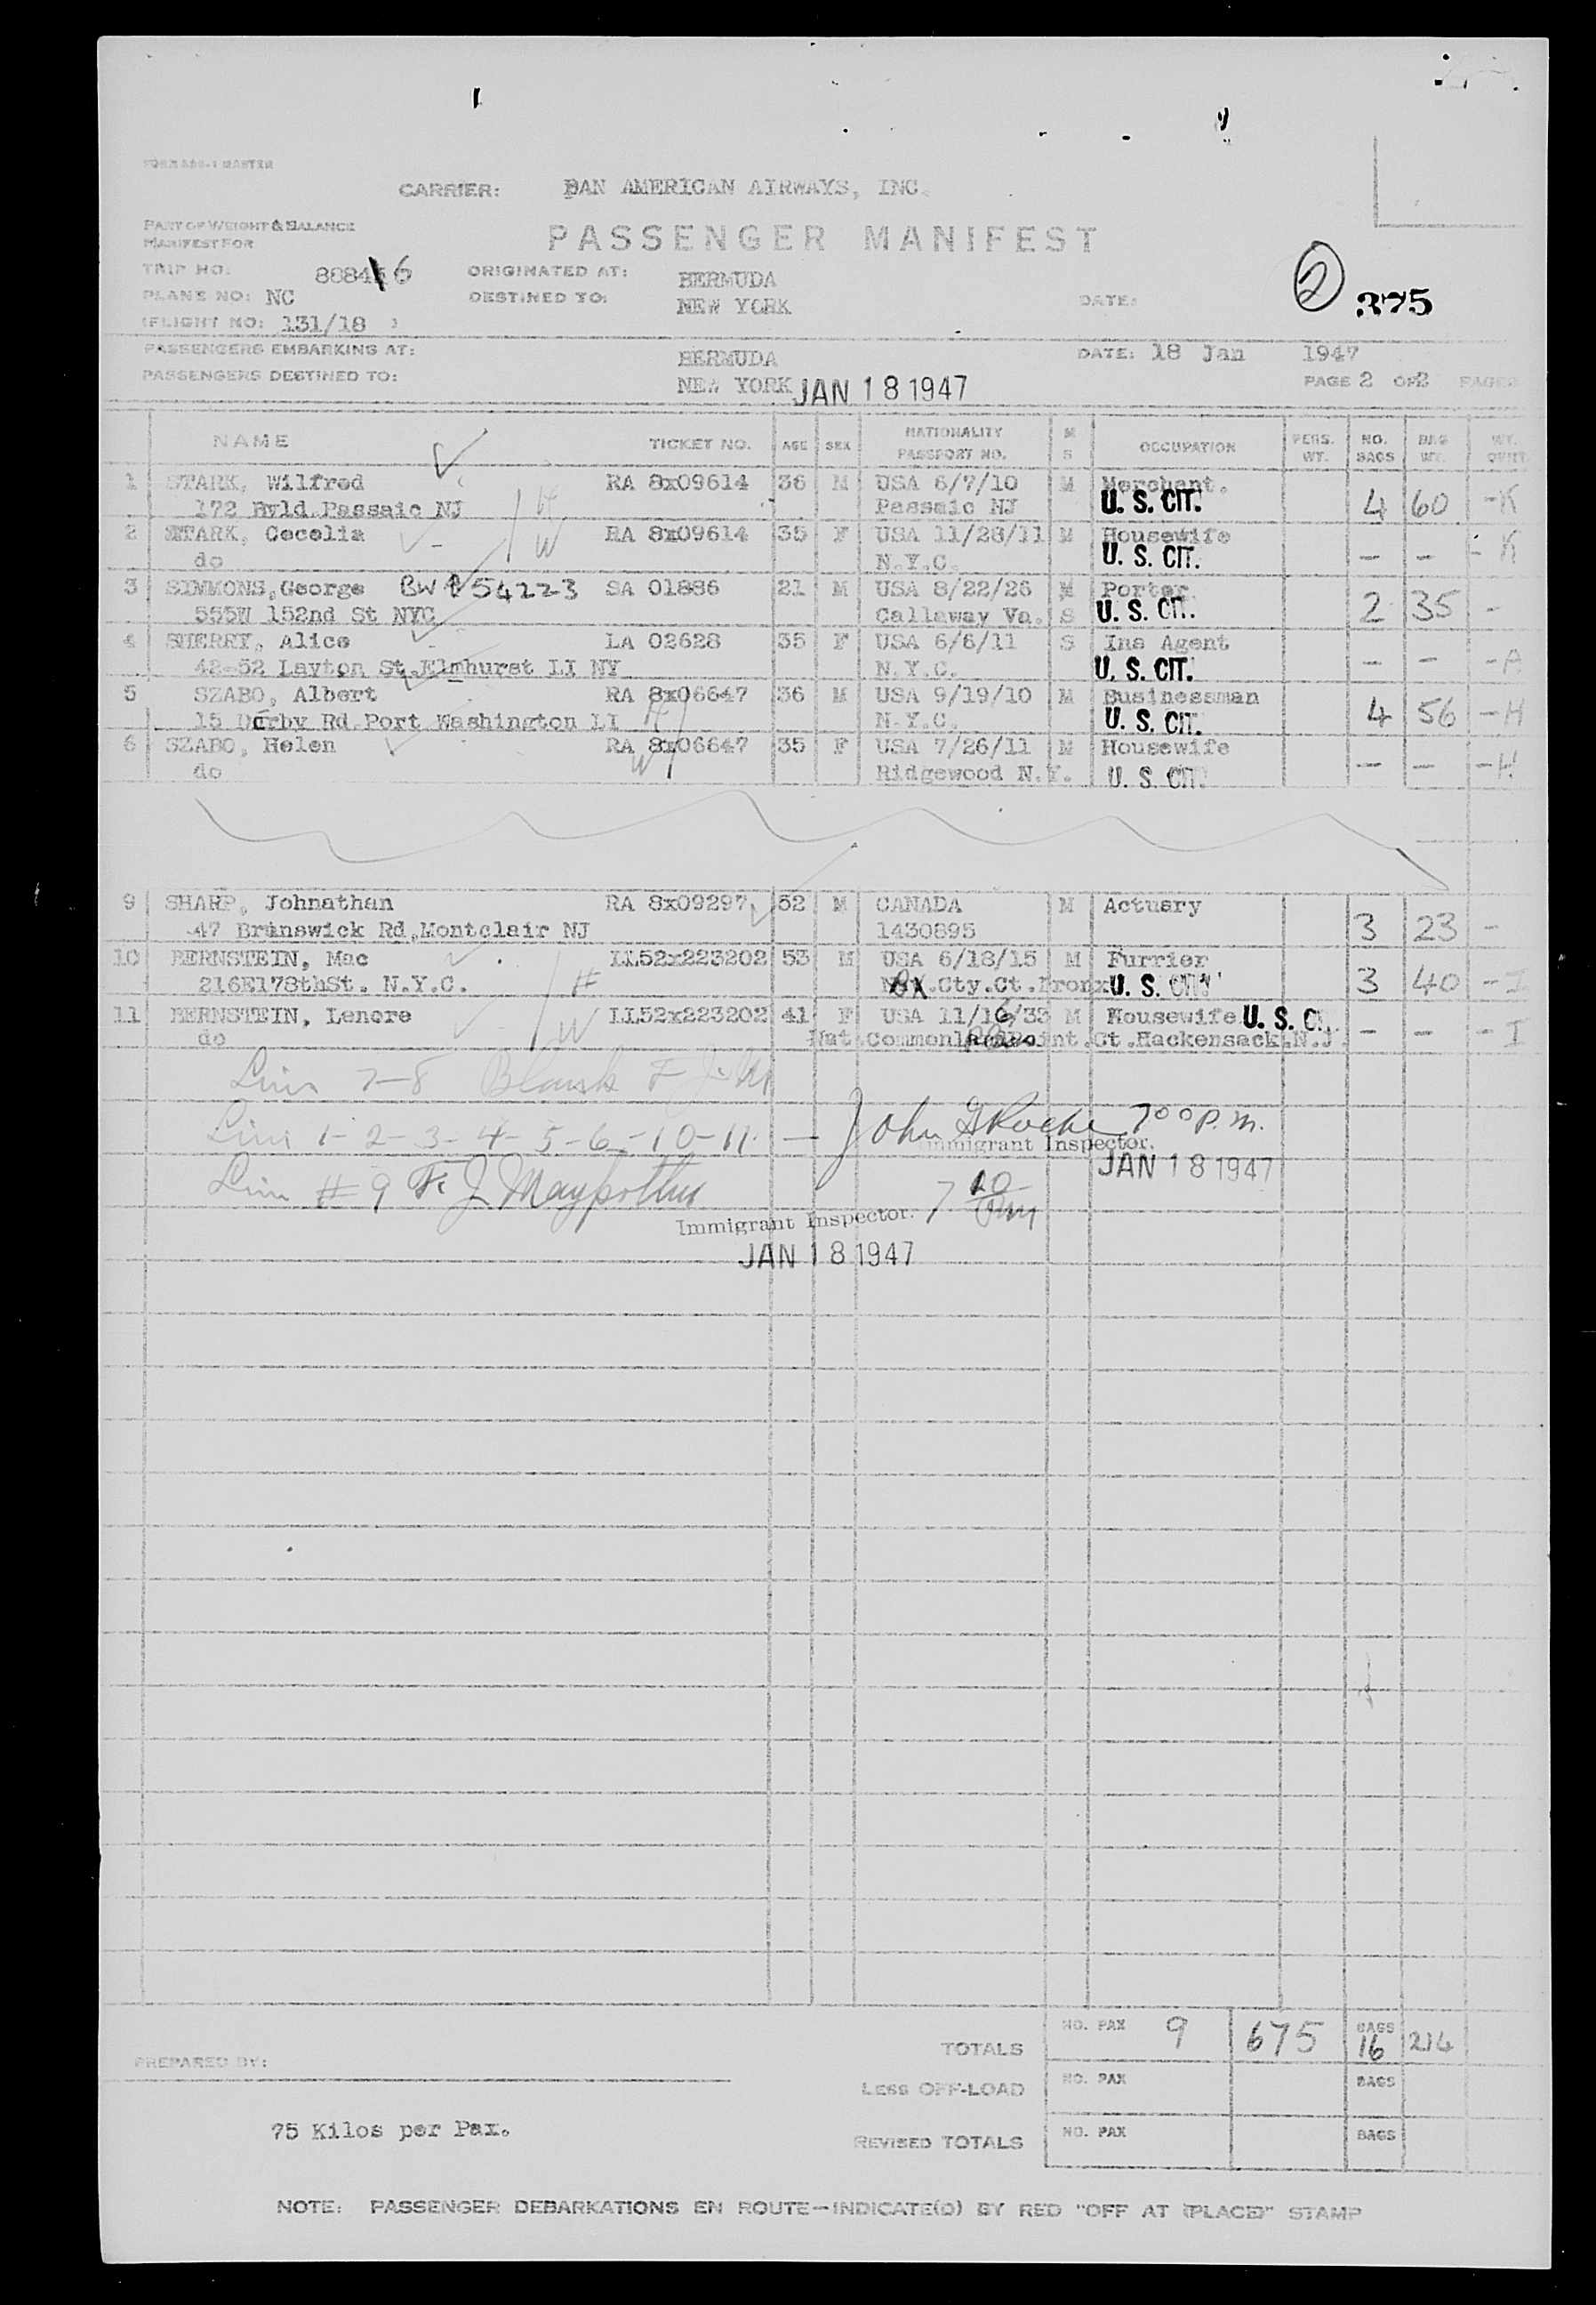 CARRIER: PAN AMERICAN AIRWAYS, INC.
PART OF WEIGHT & BALANCE
MANIFEST FOR
PASSENGER MANIFEST
TRIP NO: 6 ORIGINATED AT: BERMUDA
PLANE NO: NC DESTINED TO: NEW YORK DATE: 2 375
(FLIGHT NO: 131/18 )
PASSENGERS EMBARKING AT: BERMUDA DATE: 18 Jan 1947
PASSENGERS DESTINED TO: NEW YORK JAN 18 1947 PAGE 2 OF 2 PAGES
NAME TICKET NO. AGE SEX NATIONALITY PASSPORT NO. M S OCCUPATION PERS. WT. NO. BAGS BAG WT.
1 STARK, Wilfred RA 8x09614 36 M USA 6/7/10 M Merchant.
172 Bvld Passaic NJ H Passaic NJ U. S. CIT. 4 60 -K
2 STARK, Cecelia RA 8x09614 35 F USA 11/28/11 M Housewife
do W N.Y.C. U. S. CIT. - - - K
3 SIMMONS,George BW 54223 SA 01886 21 M USA 8/22/26 M Porter
555W 152nd St NYC Callaway Va. S U. S. CIT. 2 35 -
4 SHERRY, Alice LA 02628 35 F USA 6/6/11 S Ins Agent
42-52 Layton St.Elmhurst LI NY N.Y.C. U. S. CIT. - - -A
5 SZABO, Albert RA 8x06647 36 M USA 9/19/10 M Businessman
15 Derby Rd Port Washington LI H N.Y.C. U. S. CIT. 4 56 -H
6 SZABO, Helen RA 8x06647 35 F USA 7/26/11 M Housewife
do W Ridgewood N.Y. U. S. CIT. - - -H
9 SHARP, Johnathan RA 8x09297 52 M CANADA M Actuary
47 Brunswick Rd,Montclair NJ 1430895 3 23 -
10 BERNSTEIN, Mac LL52x223202 53 M USA 6/18/15 M Furrier
216E178thSt. N.Y.C. H Bx.Cty.Ct.Bronx U. S. CIT. 3 40 -I
11 BERNSTEIN, Lenore LL52x223202 41 F USA 11/16/33 M Housewife U. S. C.
do W Nat.Common Ct.Hackensack,N.J. - - - I
Line 7-8 Blank F J. M
Line 1-2-3-4-5-6-10-11. - John G Roche 7 00 P.M.
Immigrant Inspector.
JAN 18 1947
Line # 9 F. J Maypother 7 20 PM
Immigrant Inspector.
JAN 18 1947
TOTALS NO. PAX 9 675 BAGS 16 214
PREPARED BY:
LESS OFF-LOAD NO. PAX BAGS
75 Kilos per Pax.
REVISED TOTALS NO. PAX BAGS
NOTE: PASSENGER DEBARKATIONS EN ROUTE—INDICATE(D) BY RED "OFF AT (PLACE)" STAMP